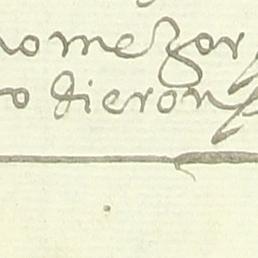 no mezor
o dieron